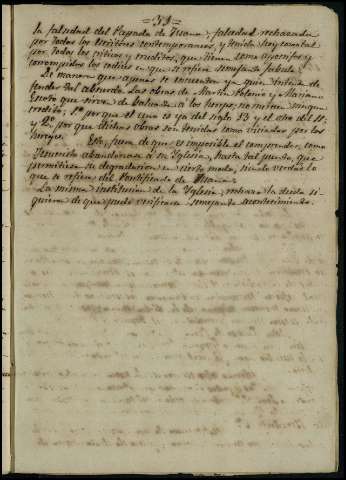 = 53 =
la falsedad del Papado de Juana, falsedad rechazada
por todos los escritores contemporaneos, y tenida hoy por tal
por todos los criticos y eruditos, que tienen como apocrifos y
corrompidos los codices en que se refiere semejante fabula.
De manera que apenas se encuentra ya quien trate de
fender tal absurdo. Las obras de Martin Polonio y Mariano
Escoto que sirven de baluarte a los herejes, no tienen ningun
credito, 1º porque el uno es ya del siglo 13 y el otro del 11;
y 2º por que dichas obras son tenidas como viciadas por los
herejes.
Esto, fuera de que es imposible el comprender, como
Jesucristo abandonase a su Iglesia, hasta tal punto, que
permitiese su degradacion en cierto modo, siendo verdad lo
que se refiere del Pontificado de Juana.
La misma institucion de la Iglesia, rechaza la duda si
quiera de que pudo verificarse semejante acontecimiento.